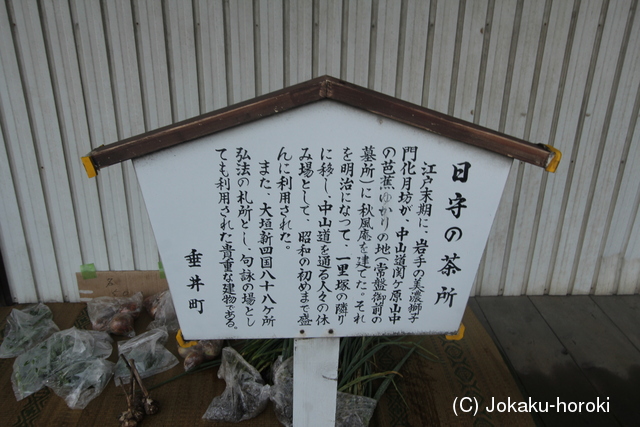 日守の茶所
江戸末期に、岩手の美濃獅子
門化月坊が、中山道関ケ原山中
の芭蕉ゆかりの地(常盤御前の
墓所)に秋風庵を建てた。それ
を明治になって、一里塚の隣り
に移し、中山道を通る人々の休
み場として、昭和の初めまで盛
んに利用された。
また、大垣新四国八十八ケ所
弘法の札所とし、句詠の場とし
ても利用された貴重な建物である。
垂井町
(C) Jokaku-horoki